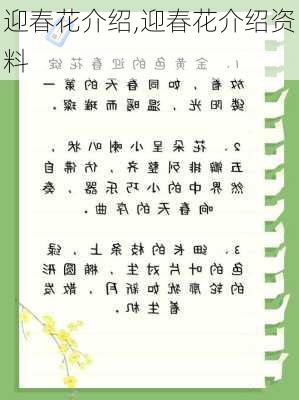 迎春花介绍,迎春花介绍资
料
1、金黄色的迎春花绽
放着，如同春天的第一
缕阳光，温暖而璀璨。
2、花朵呈小喇叭状，
五瓣排列整齐，仿佛自
然界中的小巧乐器，奏
响春天的序曲。
3、细长的枝条上，绿
色的叶片对生，椭圆形
的轮廓犹如新月，散发
着生机。